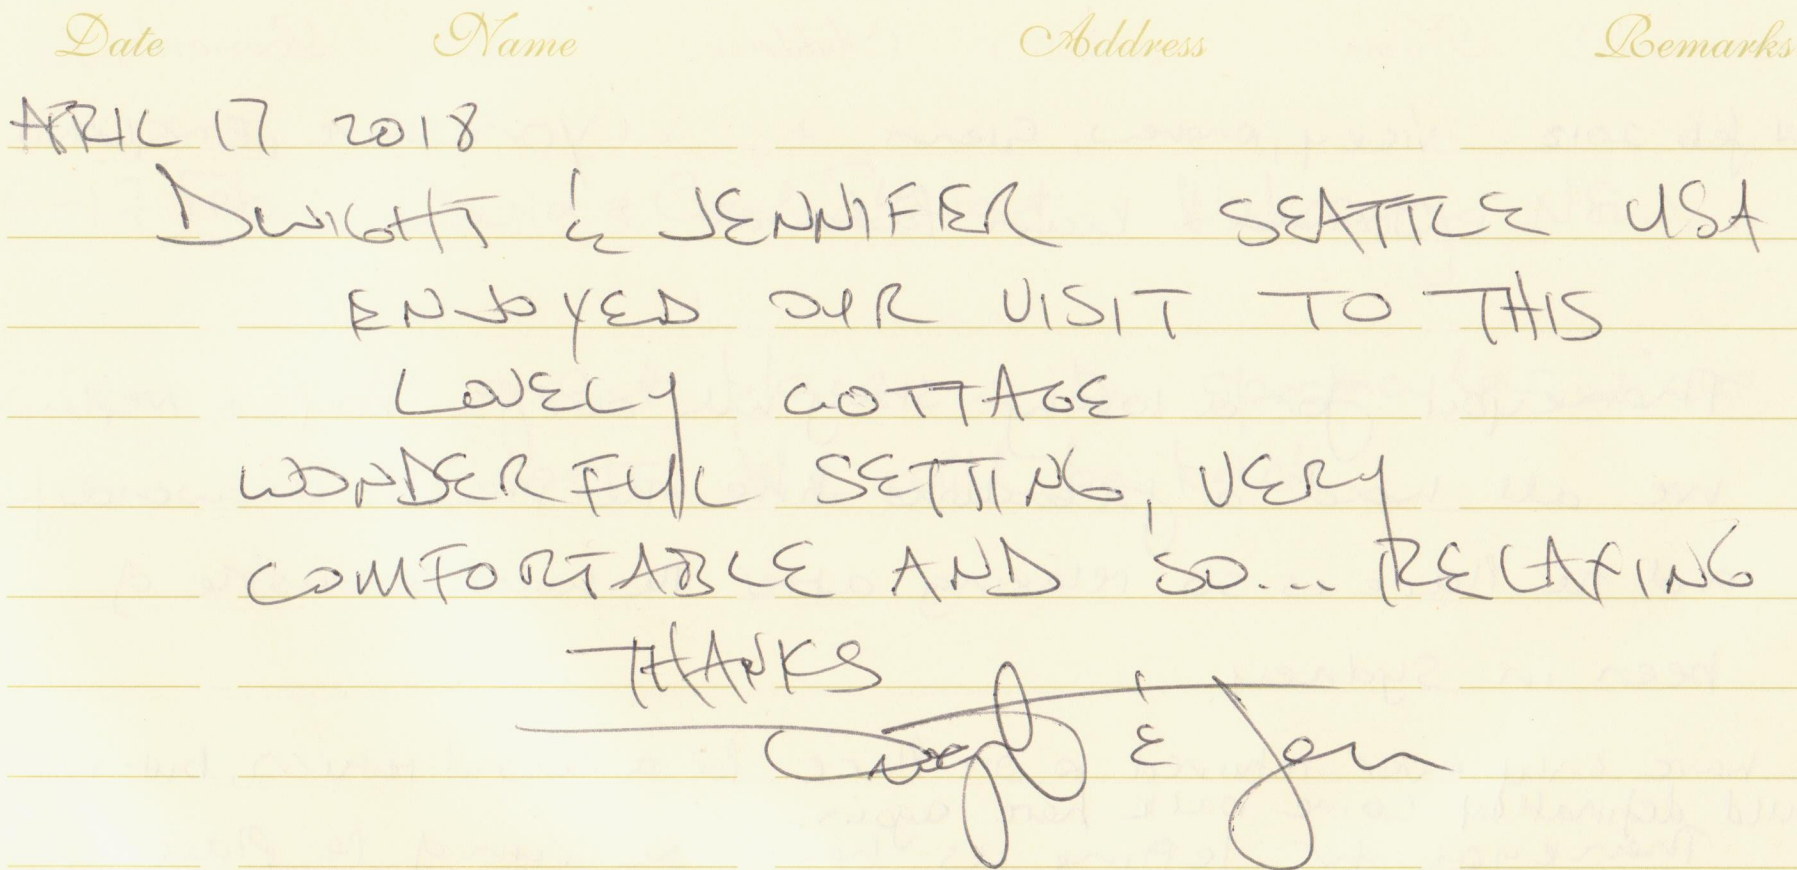 Date Name Address Remarks
APRIL 17 2018
DWIGHT & JENNIFER SEATTLE USA
ENJOYED OUR VISIT TO THIS
LOVELY COTTAGE
WONDERFUL SETTING, VERY
COMFORTABLE AND SO... RELAXING
THANKS
Dwight & Jen